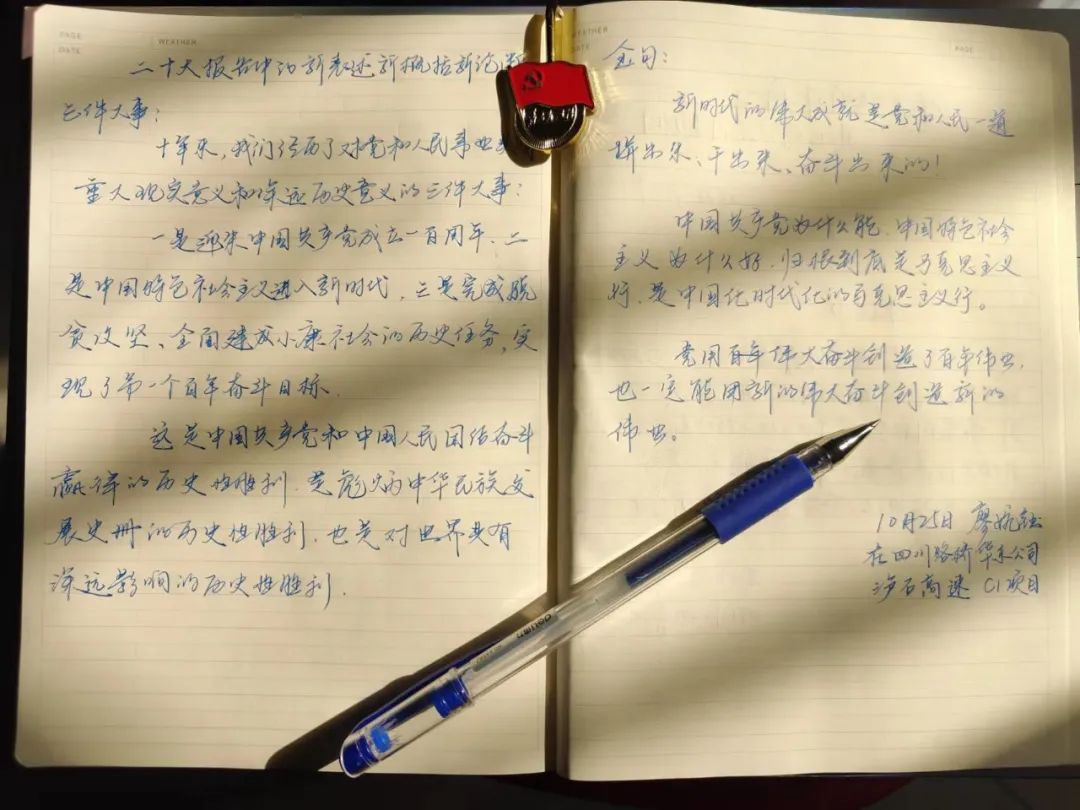 PAGE
DATE
WEATHER
二十大报告中的新表述新概括新论断
三件大事:
十年来,我们经历了对党和人民事业
重大现实意义和深远历史意义的三件大事:
一是迎来中国共产党成立一百周年、二
是中国特色社会主义进入新时代,三是完成脱
贫攻坚、全面建成小康社会的历史任务,实
现了第一个百年奋斗目标.
这是中国共产党和中国人民团结奋斗
赢得的历史性胜利.是彪炳中华民族发
展史册的历史性胜利.也是对世界具有
深远影响的历史性胜利.
WEATHER
DATE
PAGE
金句:
新时代的伟大成就是党和人民一道
拼出来、干出来、奋斗出来的!
中国共产党为什么能.中国特色社会
主义为什么好.归根到底是马克思主义
行.是中国化时代化的马克思主义行。
党用百年伟大奋斗创造了百年伟业.
也一定能用新的伟大奋斗创造新的
伟业。
10月25日 廖
在四川路桥华东公司
泸石高速 C1项目